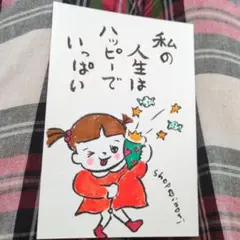 私の
人生は
ハッピーで
いっぱい